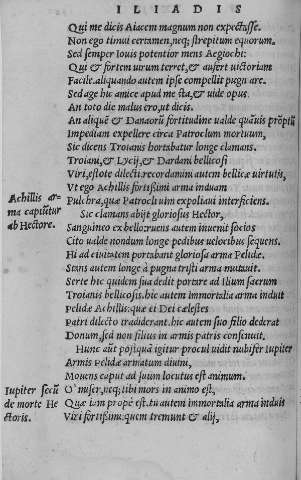 ILIADIS
Qui me dicis Aiacem magnum non expectasse.
Non ego timui certamen, neq; strepitum equorum.
Sed semper Iouis potentior mens Aegiochi:
Qui & fortem uirum terret, & aufert uictoriam
Facile. aliquando autem ipse compellit pugnare.
Sed age hic amice apud me sta, & uide opus.
An toto die malus ero, ut dicis.
An aliquē & Danaorū fortitudine ualde quāuis prōptū
Impediam expellere circa Patroclum mortuum,
Sic dicens Troianis hortabatur longe clamans.
Troiani, & Lycij, & Dardani bellicosi
Viri, estote dilecti. recordamini autem bellicæ uirtutis,
Vt ego Achillis fortissimi arma induam
Pulchra, quæ Patrocli uim expoliaui interficiens.
Achillis ar-
ma capiūtur
ab Hectore.
Sic clamans abijt gloriosus Hector,
Sanguineo ex bello: ruens autem inuenit socios
Cito ualde nondum longe pedibus uelocibus sequens.
Hi ad ciuitatem portabant gloriosa arma Pelidæ.
Stans autem longe à pugna tristi arma mutauit.
Certe hic quidem sua dedit portare ad Ilium sacrum
Troianis bellicosis. hic autem immortalia arma induit
Pelidæ Achillis: quæ ei Dei cælestes
Patri dilecto tradiderant. hic autem suo filio dederat
Donum, sed non filius in armis patris consenuit.
Hunc aūt postquā igitur procul uidit nubifer Iupiter
Armis Pelidæ armatum diuini,
Mouens caput ad suum locutus est animum.
Iupiter secū
de morte He
ctoris.
O' miser, neq; tibi mors in animo est,
Quæ iam prope est. tu autem immortalia arma induis
Viri fortissimi: quem tremunt & alij,